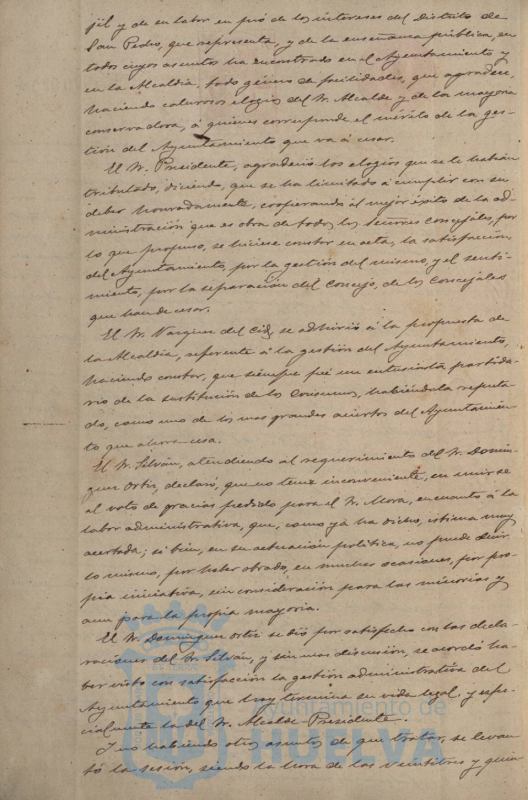 jil y de su labor en pró de los intereses del Distrito de
San Pedro, que representa, y de la enseñanza pública, en
todos cuyos asuntos ha encontrado en el Ayuntamiento y
en la Alcaldía, todo género de facilidades, que agradece,
haciendo calurosos elogios del Sr. Alcalde y de la mayoria
conservadora, á quienes corresponde el mérito de la ges-
tión del Ayuntamiento que va á cesar.
El Sr. Presidente, agradeció los elogios que se le habían
tributado, diciendo, que se ha limitado á cumplir con su
deber honradamente, cooperando al mejor éxito de la ad-
ministración que es obra de todos los Señores Concejales, por
lo que propuso, se hiciese constar en acta, la satisfacción
del Ayuntamiento, por la gestión del mismo, y el senti-
miento, por la separación del Concejo, de los Concejales
que han de cesar.
El Sr. Vazquez del Cid, se adhirió á la propuesta de
la Alcaldía, referente á la gestión del Ayuntamiento,
haciendo constar, que siempre fué un entusiasta partida-
rio de la sustitución de los Consumos, habiéndola reputa-
do, como uno de los mas grandes aciertos del Ayuntamien-
to que ahora cesa.
El Sr. Silván, atendiendo al requerimiento del Sr. Domin-
guez Ortiz, declaró, que no tenía inconveniente, en unirse
al voto de gracias pedido para el Sr. Mora, en cuanto á la
labor administrativa, que, como ya ha dicho, estima muy
acertada; si bien, en su actuación política, no puede decir
lo mismo, por haber obrado, en muchas ocasiones, por pro-
pia iniciativa, sin consideración para las minorías y
aun para la propia mayoria.
El Sr. Dominguez Ortiz se dió por satisfecho con las decla-
raciones del Sr. Silván, y sin mas discusión, se acordó ha-
ber visto con satisfacción la gestión administrativa del
Ayuntamiento que hoy termina su vida legal, y espe-
cialmente la del Sr. Alcalde-Presidente.
Y no habiendo otros asuntos de que tratar, se levan-
tó la sesión, siendo la hora de las veintitres y quin
Ayuntamiento de
HUELVA